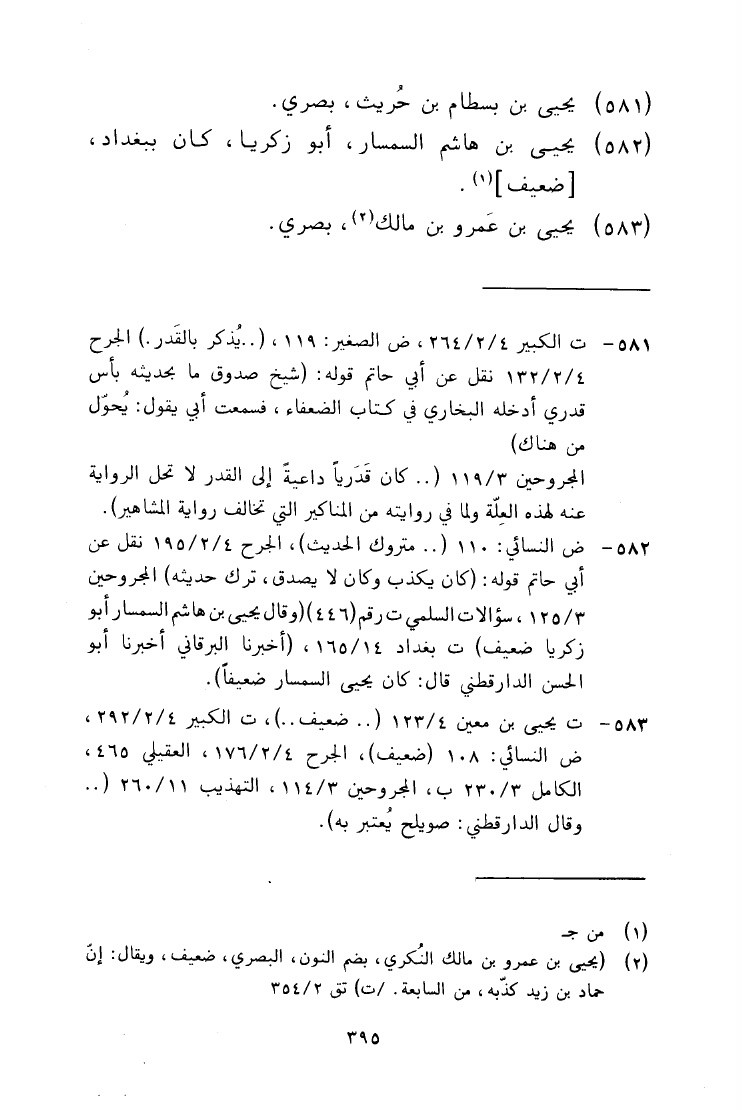 (٥٨١) يحيى بن بسطام بن حُريث، بصري.
(٥٨٢) يحيى بن هاشم السمسار، أبو زكريا، كان ببغداد،
[ضعيف](١).
(٥٨٣) يحيى بن عَمرو بن مالك(٢)، بصري.
٥٨١- ت الكبير ٢٦٤/٢/٤، ض الصغير: ١١٩، (..يُذكر بالقَدر.) الجرح
١٣٢/٢/٤ نقل عن أبي حاتم قوله: (شيخ صدوق ما بحديثه بأس
قدري أدخله البخاري في كتاب الضعفاء، فسمعت أبي يقول: يُحوّل
من هناك)
المجروحين ١١٩/٣ (.. كان قَدَرياً داعيةً إلى القدر لا تحل الرواية
عنه لهذه العِلّة ولما في روايته من المناكير التي تخالف رواية المشاهير).
٥٨٢- ض النسائي: ١١٠ (.. متروك الحديث)، الجرح ١٩٥/٢/٤ نقل عن
أبي حاتم قوله: (كان يكذب وكان لا يصدق، ترك حديثه) المجروحين
١٢٥/٣، سؤالات السلمي ت رقم(٤٤٦)(وقال يحيى بن هاشم السمسار أبو
زكريا ضعيف) ت بغداد ١٦٥/١٤، (أخبرنا البرقاني أخبرنا أبو
الحسن الدارقطني قال: كان يحيى السمسار ضعيفاً).
٥٨٣- ت يحيى بن معين ١٢٣/٤ (.. ضعيف..)، ت الكبير ٢٩٢/٢/٤،
ض النسائي: ١٠٨ (ضعيف)، الجرح ١٧٦/٢/٤، العقيلي ٤٦٥،
الكامل ٢٣٠/٣ ب، المجروحين ١١٤/٣، التهذيب ٢٦٠/١١ (..
وقال الدارقطني: صويلح يُعتبر به).
(١) من جـ
(٢) (يحيى بن عمرو بن مالك النُكري، بضم النون، البصري، ضعيف، ويقال: إنّ
حماد بن زيد كذّبه، من السابعة. /ت) تق ٣٥٤/٢
٣٩٥